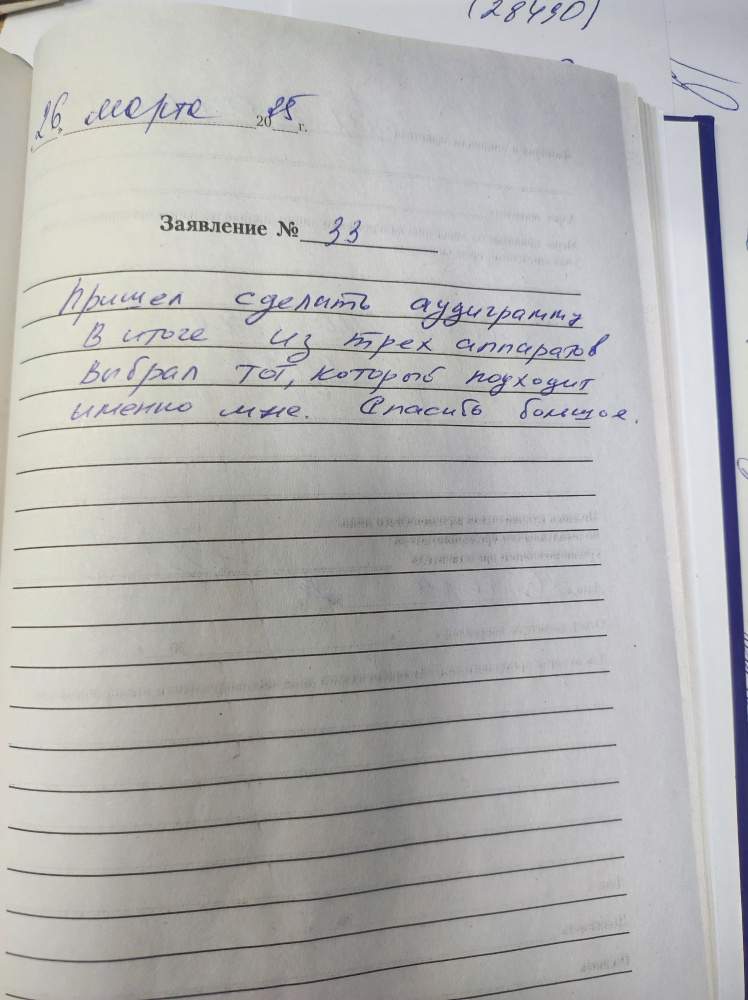 (28490)
„26" марта 2025 г.
Заявление № 33
Пришел сделать аудиграмму
В итоге из трех аппаратов
выбрал тот, который подходит
именно мне. Спасибо большое.